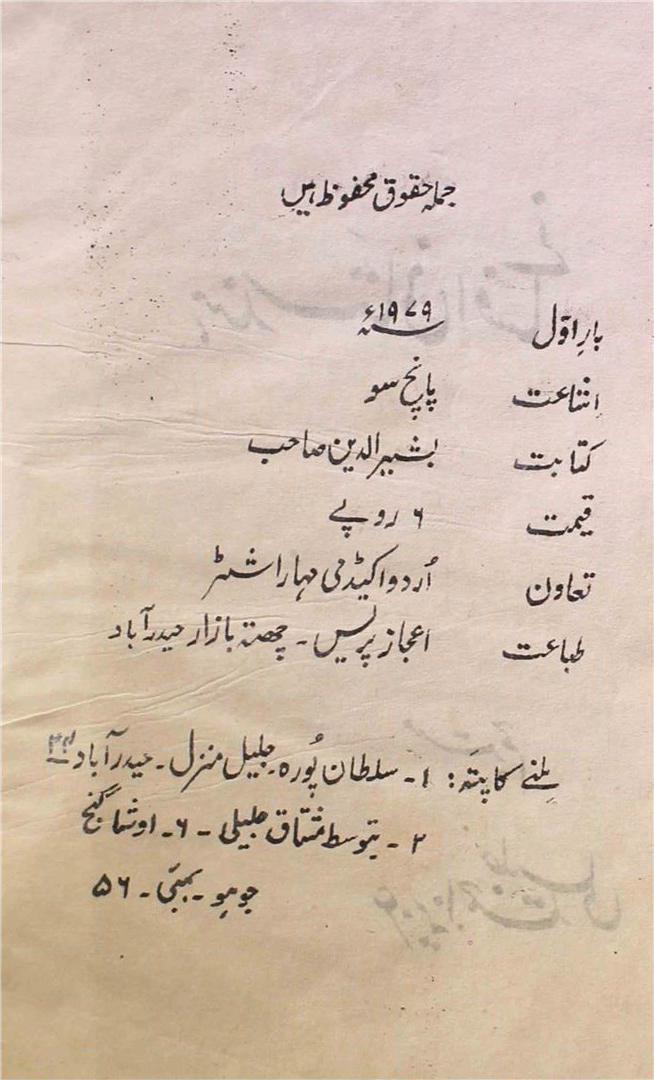 جملہ حقوق محفوظ ہیں
بارِ اوّل ۱۹۷۹ء
اشاعت پانچ سو
کتابت بشیر الدین صاحب
قیمت ۶ روپے
تعاون اُردو اکیڈمی مہاراشٹر
طباعت اعجاز پریس۔ چھتہ بازار حیدرآباد
ملنے کا پتہ: ۱۔ سلطان پُورہ۔ جلیل منزل۔ حیدرآباد ۲۴
۲۔ بتوسط مشتاق جلیلی۔ ۶۔ اوشما گنج
جوہو۔ بمبئی۔ ۵۶